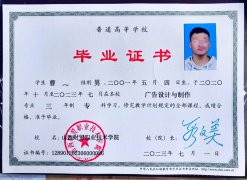 普通高等学校
毕业证书
学生 曹 性别 男，二〇〇一年 五 月 四 日生，于二〇二〇
年 十 月至二〇二三年 七 月在本校 广告设计与制作
专业 三 年制 专 科学习，修完教学计划规定的全部课程，成绩合
格，准予毕业。
校 名： 职业技术学院 校（院）长：
证书编号：
二〇二三年 七 月 一 日